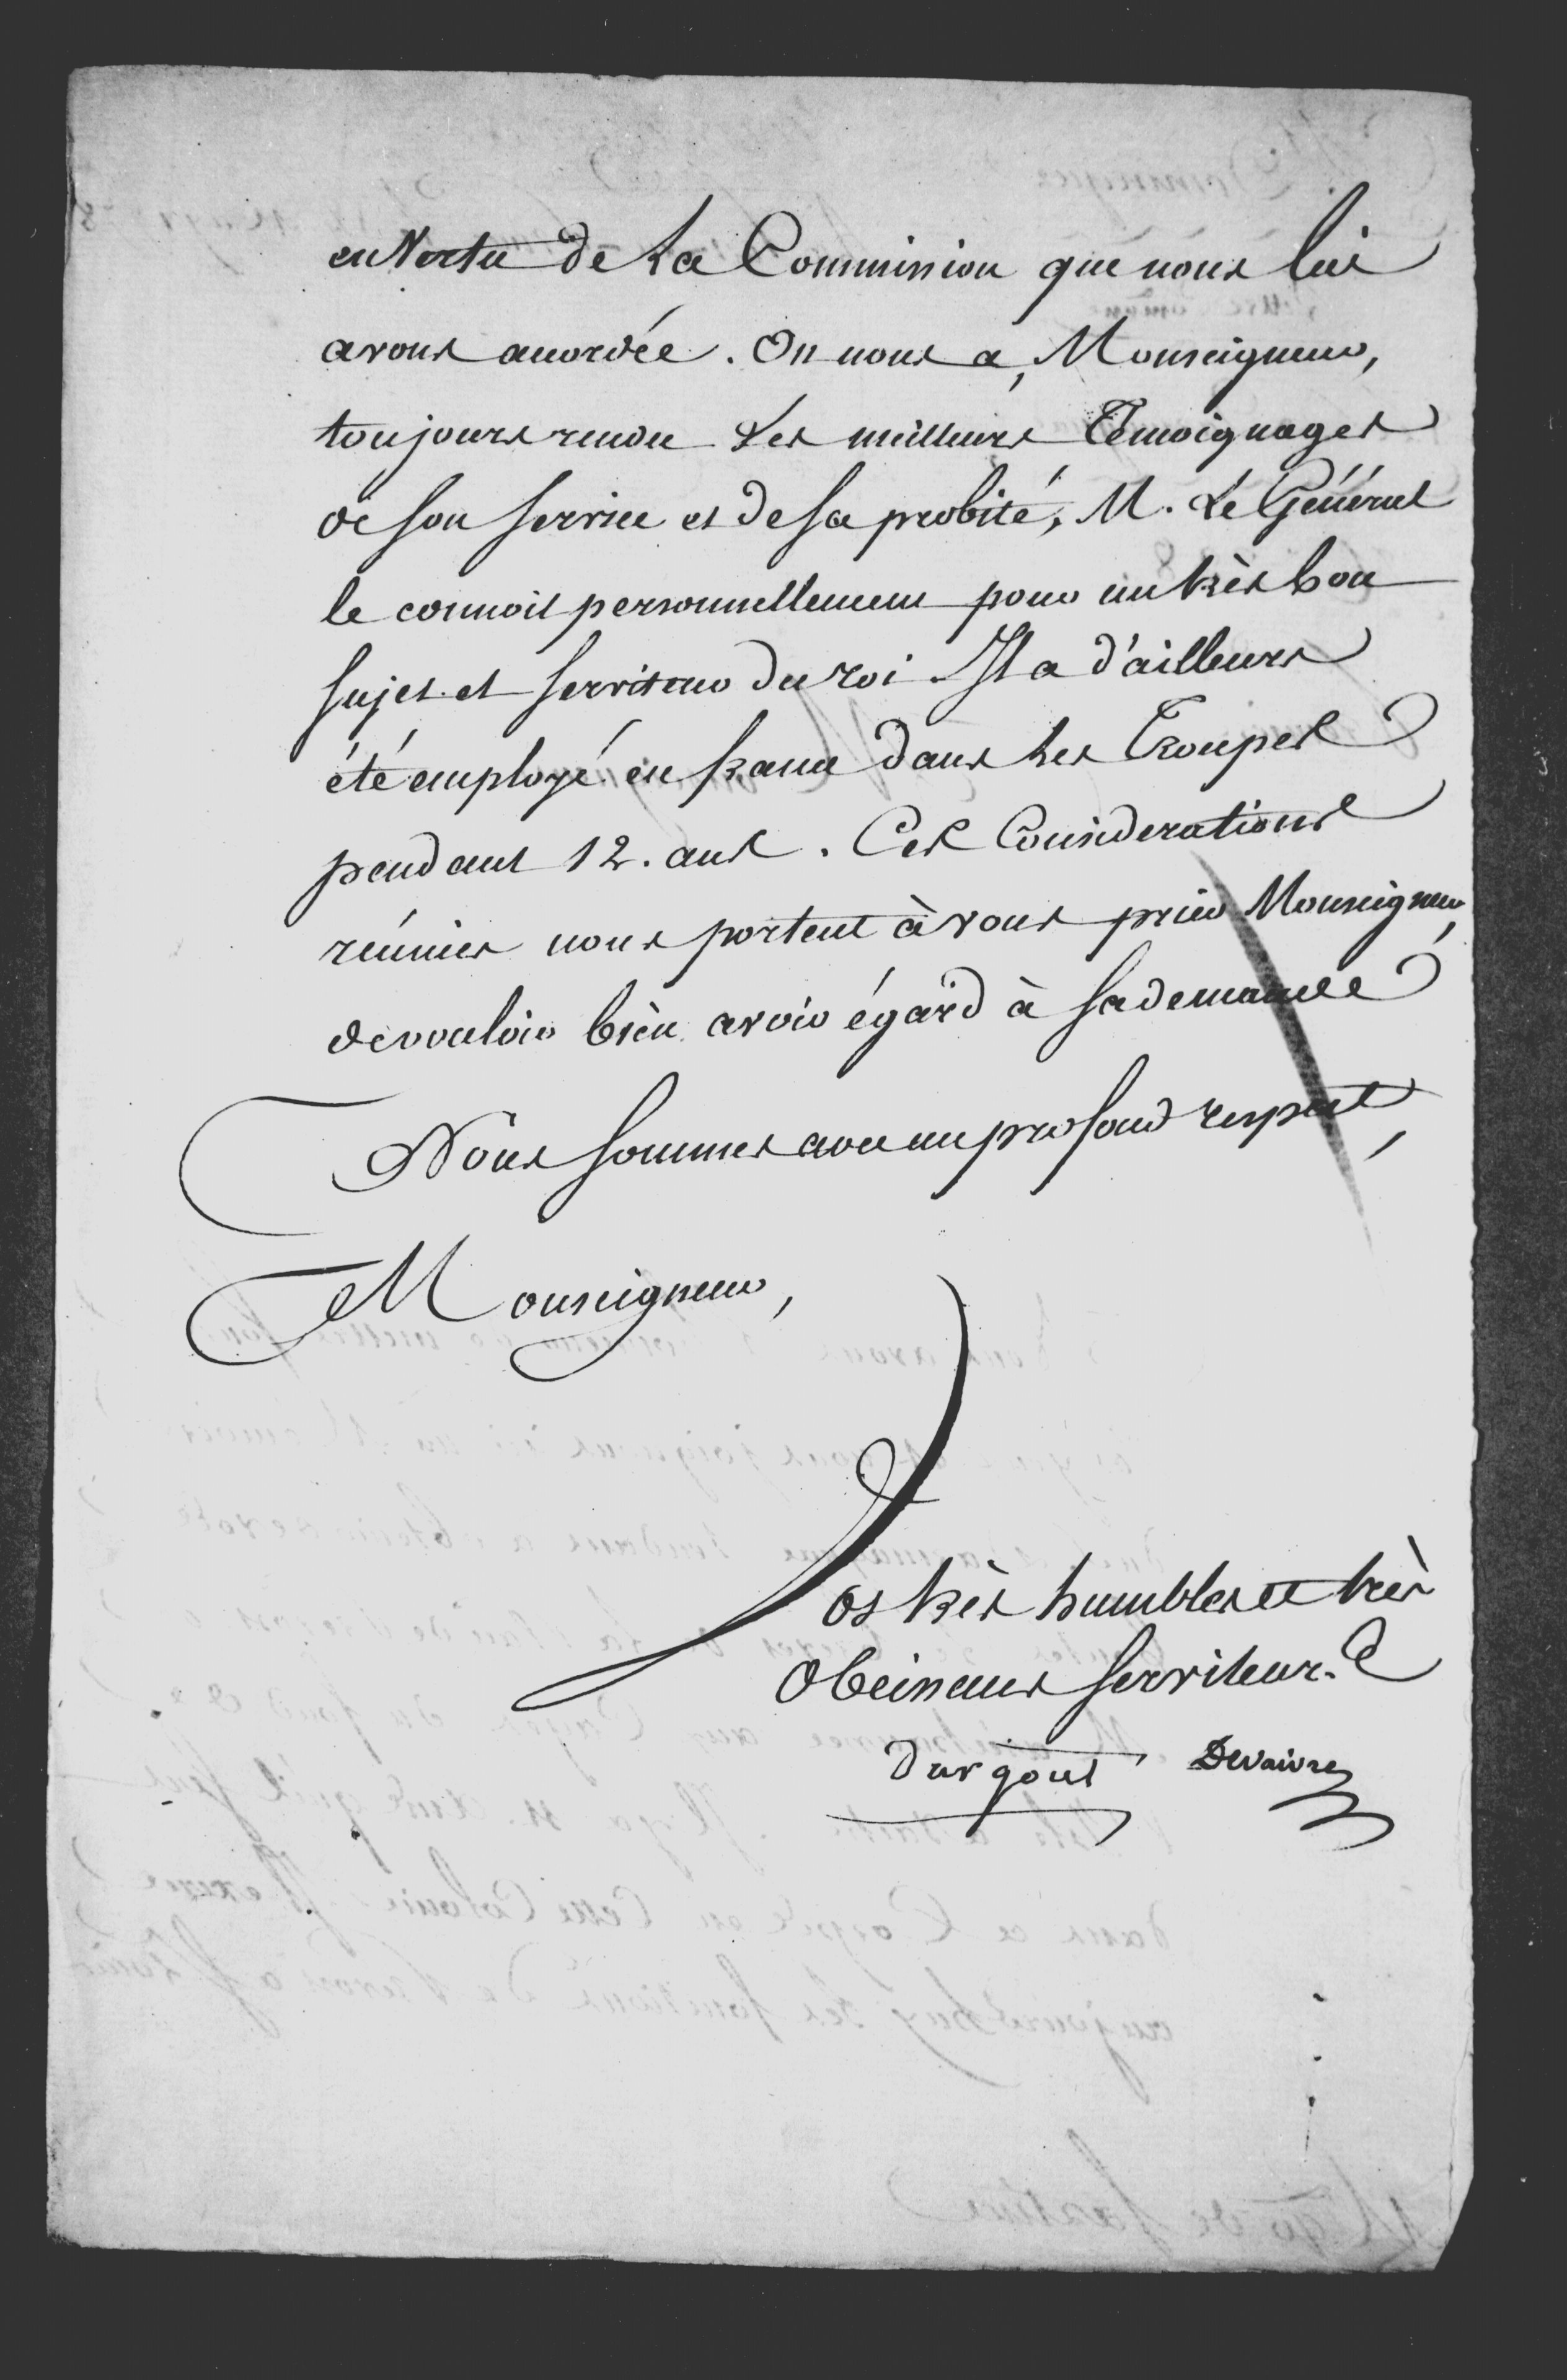 en Vertu de La Commission que nous lui
avons accordée. On nous a, Monseigneur,
toujours rendu Les meilleurs Témoignages
de son service et de sa probité, M. Le Général
le connoit personnellement pour un très bon
sujet et serviteur du roi. Il a d'ailleurs
été employé en france dans Les Troupes
pendant 12. ans. Ces Considerations
réunies nous portent à vous prier Monseigneur,
de vouloir bien avoir égard à sa demande
Nous sommes avec un profond respect,
Monseigneur,
Vos très humbles et très
Obeissans serviteurs
Dargout Devaivre